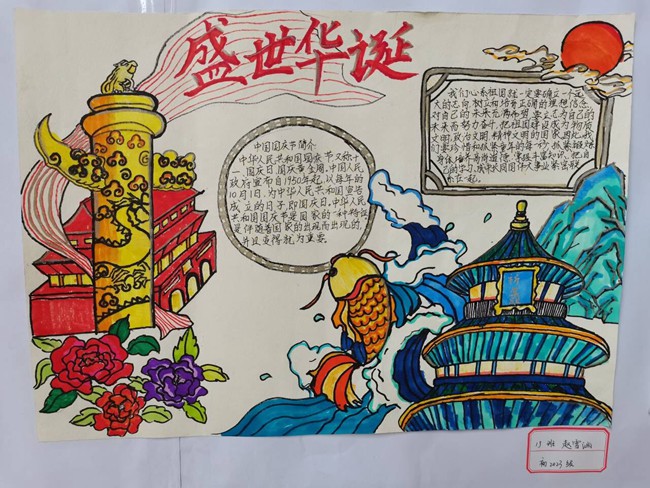 盛世华诞
中国国庆节简介
中华人民共和国国庆节又称十
一、国庆日、国庆黄金周。中国人民
政府宣布自1950年起,以每年的
10月1日,为中华人民共和国宣告
成立的日子,即国庆日。中华人民
共和国国庆节是国家的一种特征
是伴随着国家的出现而出现的,
并且变得尤为重要。
我们心系祖国就一定要确立一个远
大的志向,树立和培养正确的理想信念
对自己的未来充满希望,要立志为自己的
未来而努力奋斗,把祖国建设成为物质
文明、政治文明、精神文明的国家
们要珍惜和抓紧
身体培养
己的学习
祈年殿
13班 赵雪涵
初2023级